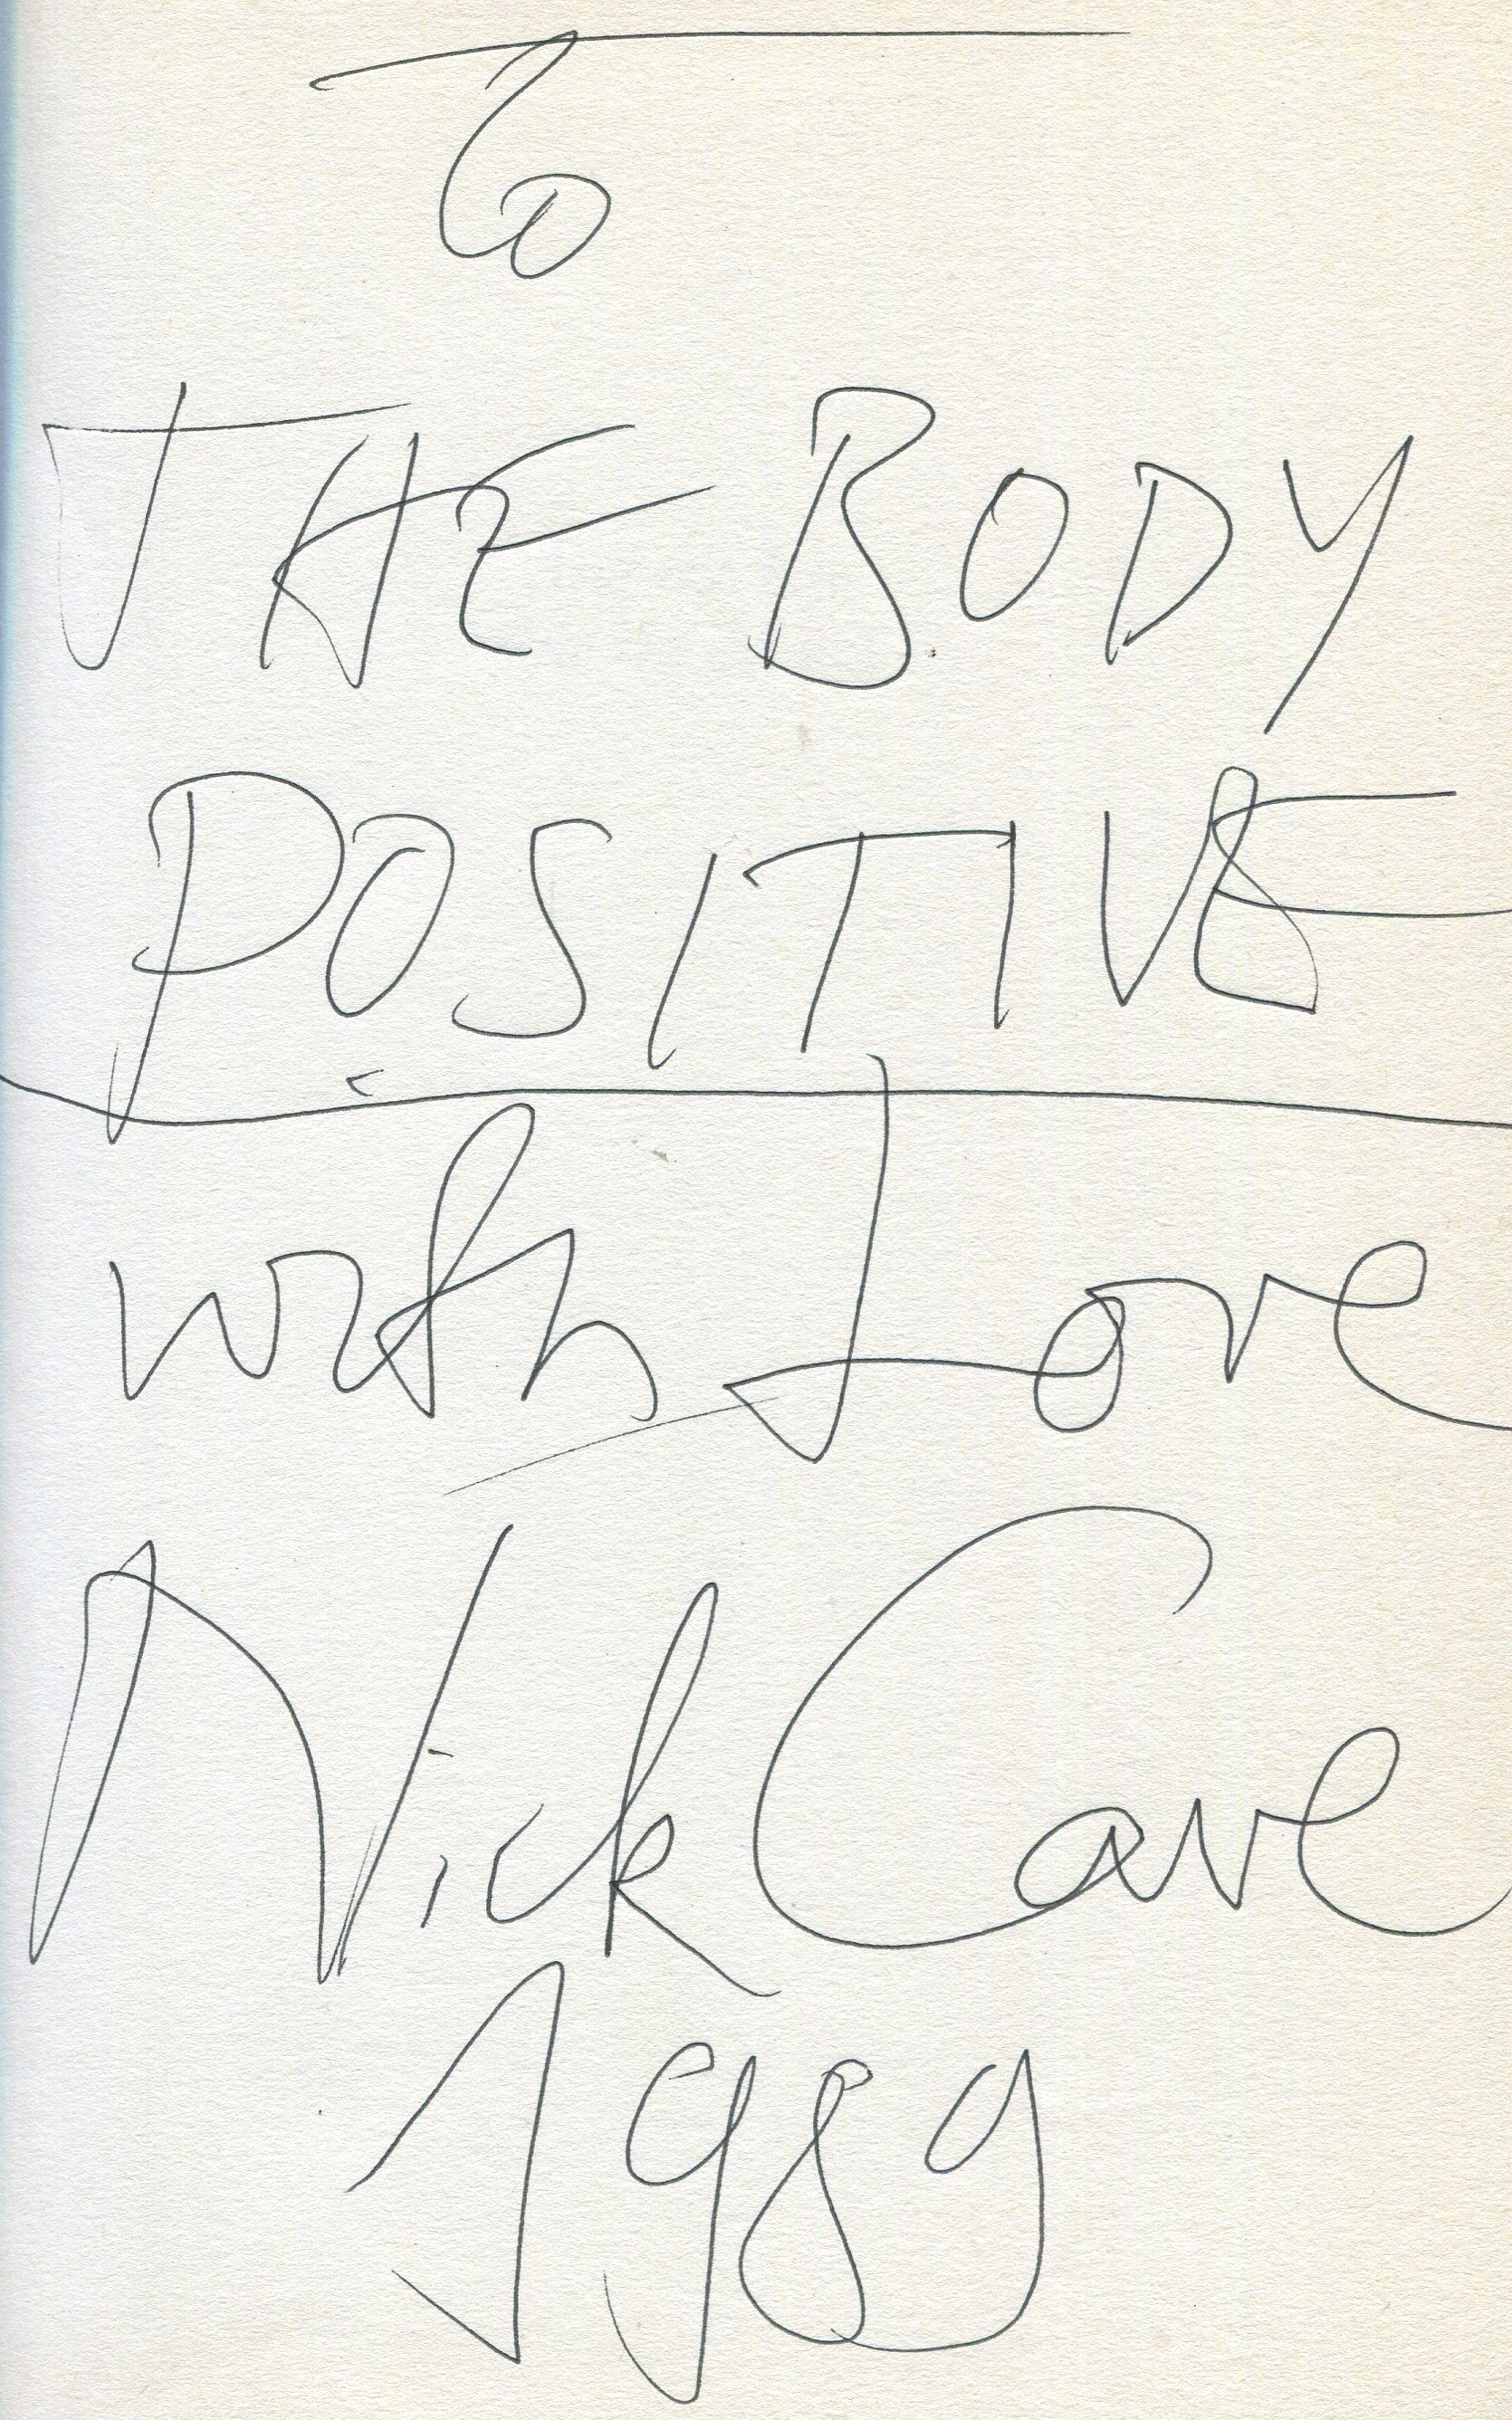 To
THE BODY
POSITIVE
with Love
Nick Cave
1989